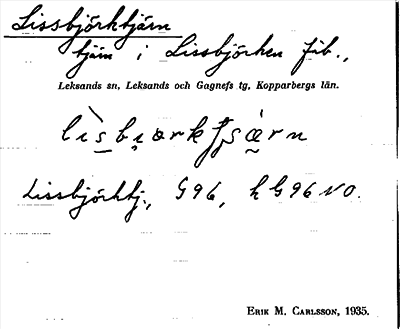 Lissbjörktjärn
tjärn i Lissbjörken fib.,
Leksands sn, Leksands och Gagnefs tg, Kopparbergs län.
Lissbjörktj., G96, h G96 NO.
ERIK M. CARLSSON, 1935.